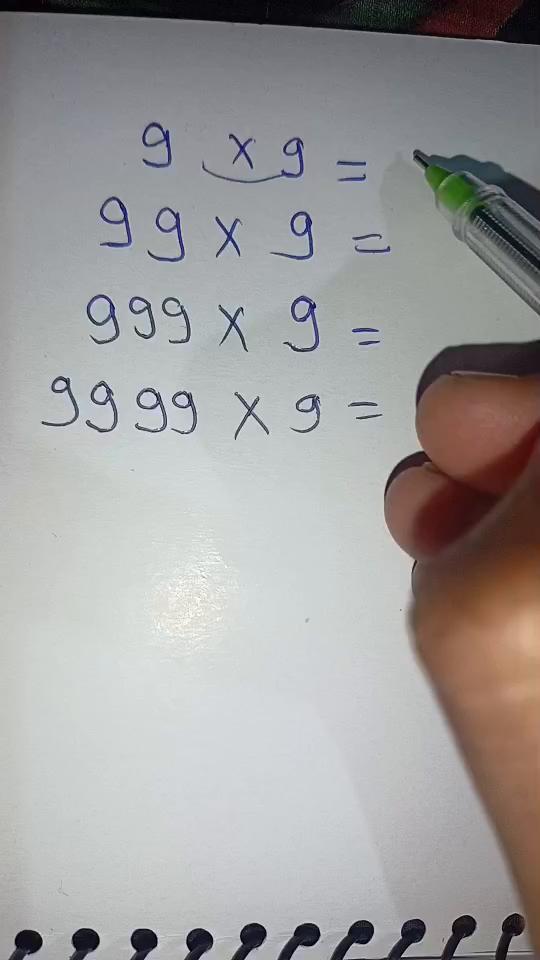 9 × 9 =
99 × 9 =
999 × 9 =
9999 × 9 =